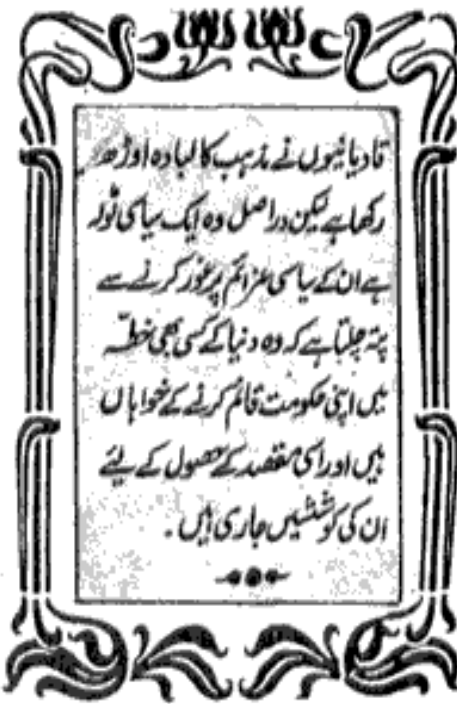 قادیانیوں نے مذہب کا لبادہ اوڑھ
رکھا ہے لیکن دراصل وہ ایک سیاسی ٹولہ
ہے ان کے سیاسی عزائم پر غور کرنے سے
پتہ چلتا ہے کہ وہ دنیا کے کسی بھی خطہ
میں اپنی حکومت قائم کرنے کے خواہاں
ہیں اور اسی مقصد کے حصول کے لیئے
ان کی کوششیں جاری ہیں ۔